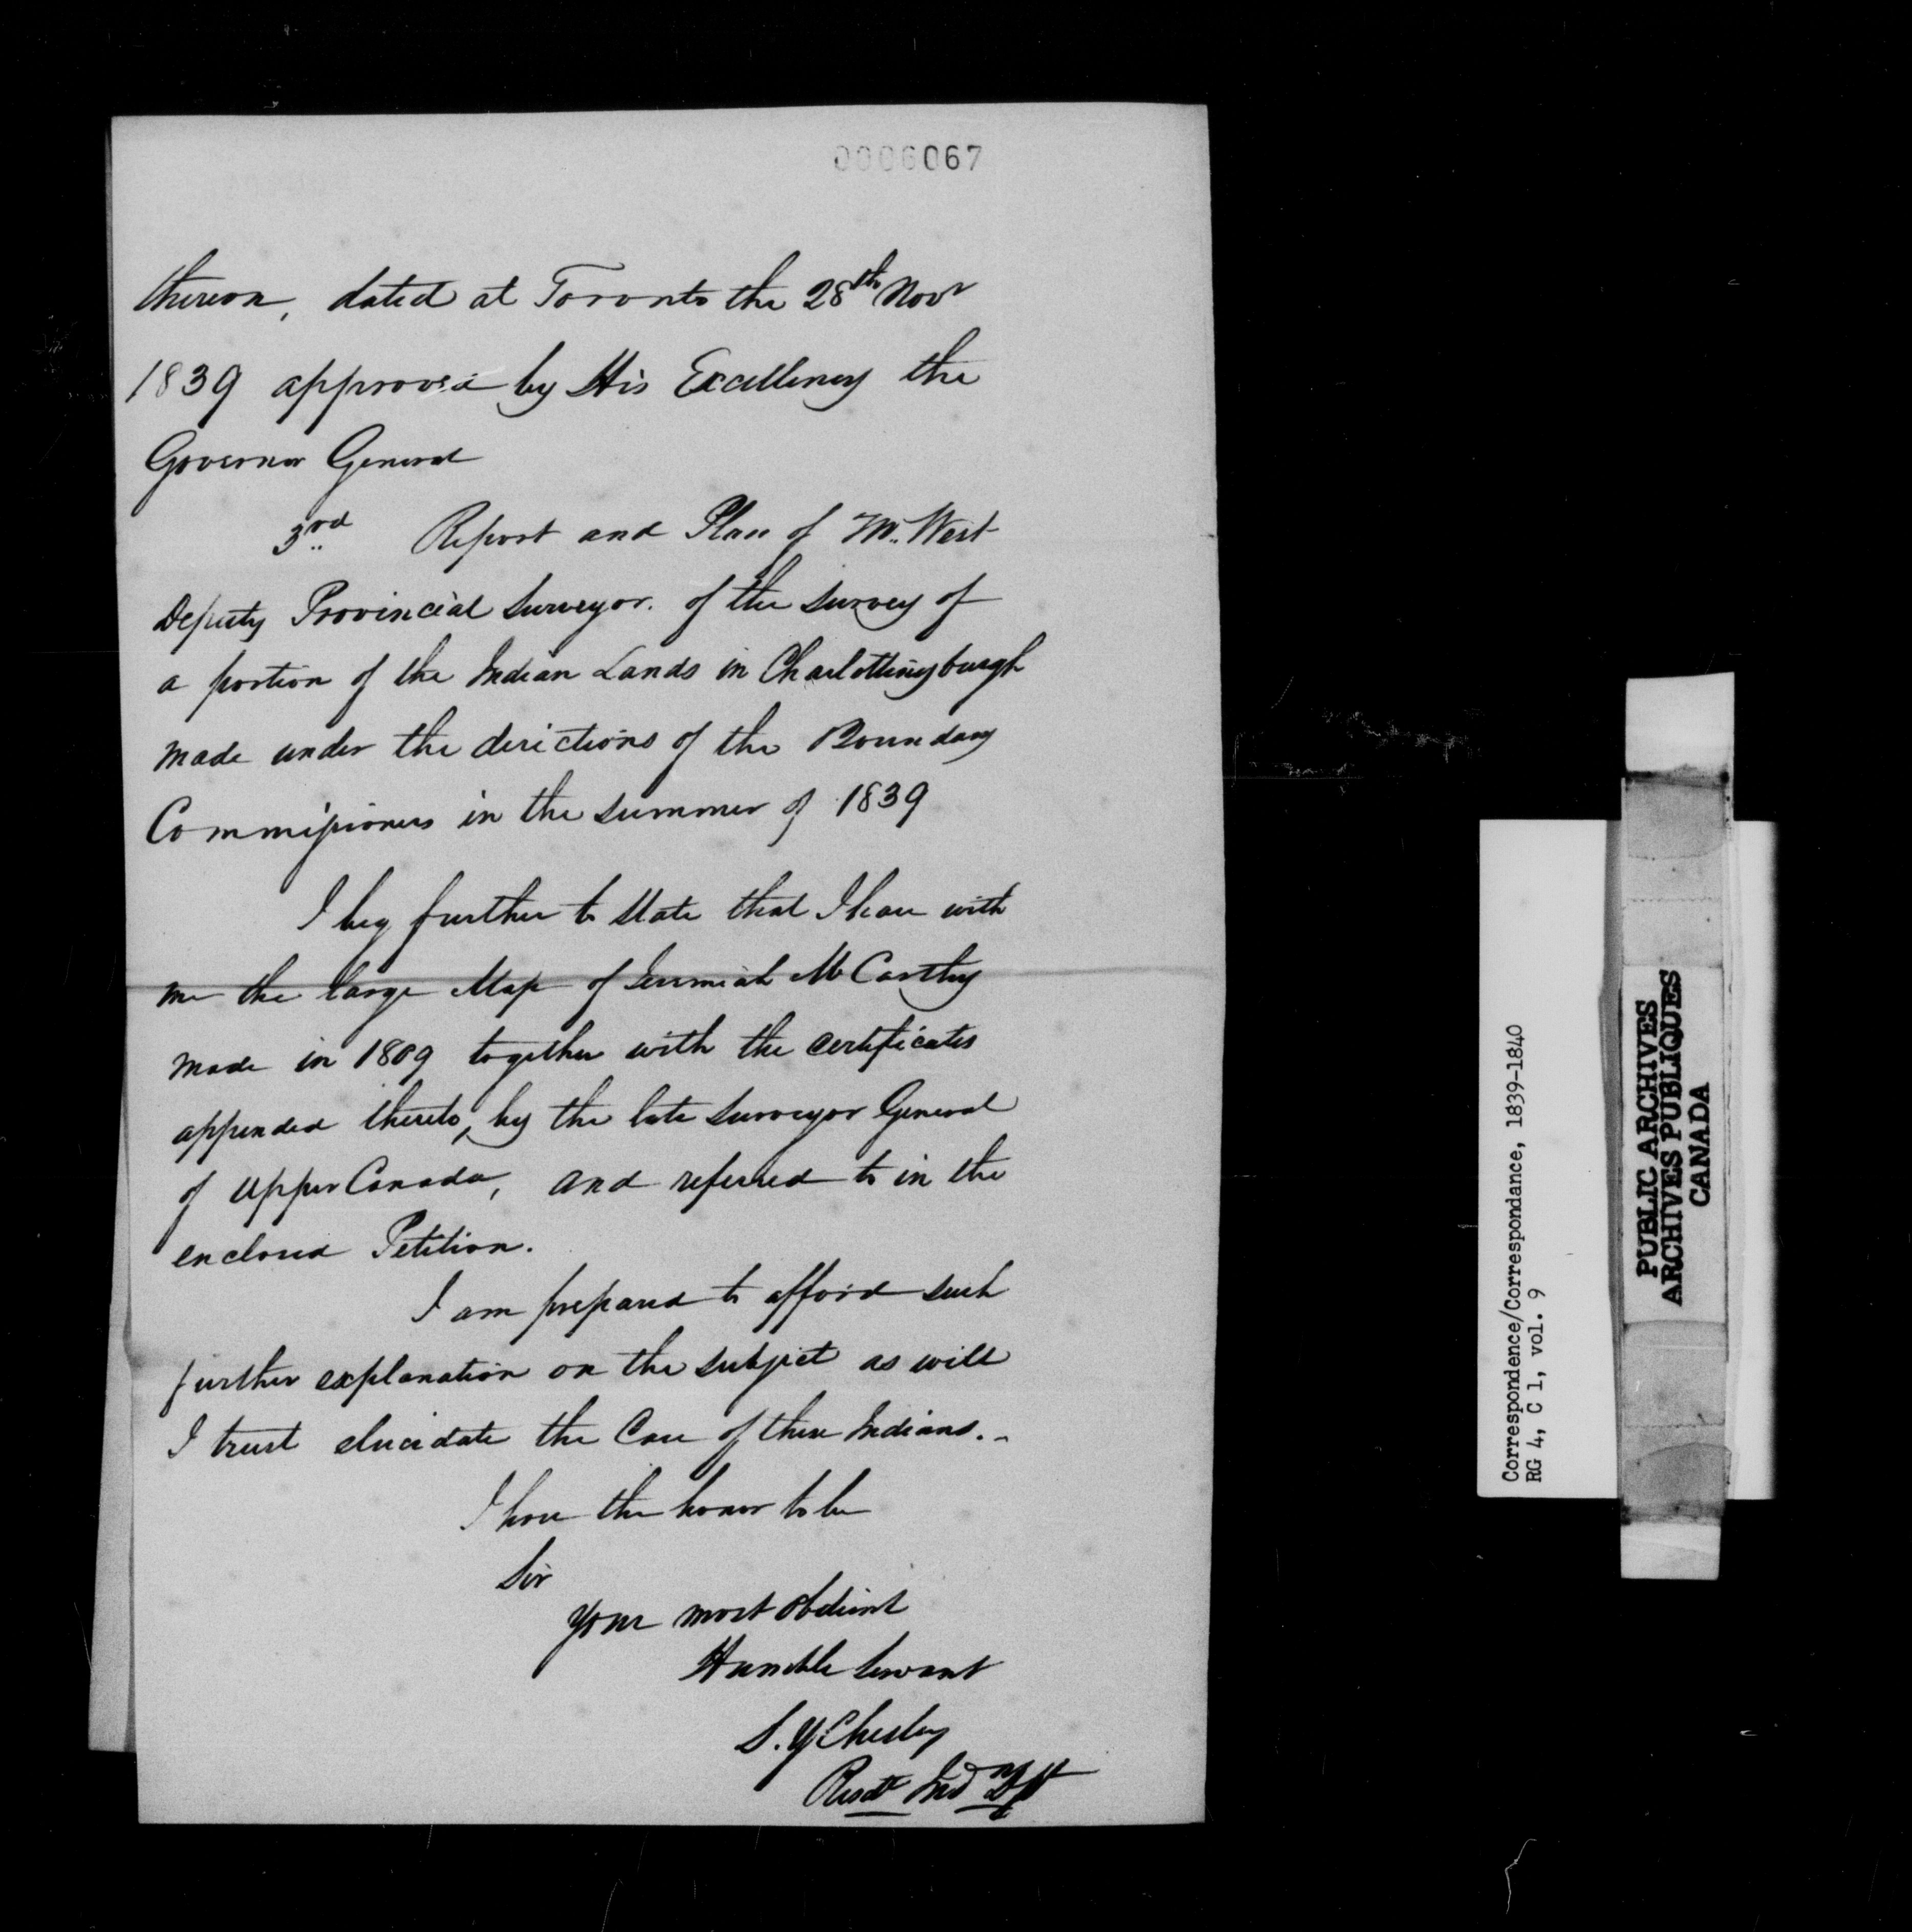 0006067
thereon, dated at Toronto the 28th Novr
1839 approved by His Excellency the
Governor General
3rd Report and Plan of Mr. West
Deputy Provincial Surveyor. of the survey of
a portion of the Indian Lands in Charlottingburgh
made under the directions of the Boundary
Commissioners in the summer of 1839
I beg further to state that I have with
me the large Map of Jeremiah McCarthy
made in 1809 together with the certificates
appended thereto, by the late Surveyor General
of Upper Canada, and referred to in the
enclosed Petition.
I am prepared to afford such
further explanation on the subject as will
I trust elucidate the Case of these Indians.-
I have the honor to be
Sir
Your most obedient
Humble Servant
S. Y Chesley
Resdt Ind Dpt
Correspondence/Correspondance, 1839-1840
RG 4, C 1, vol. 9
PUBLIC ARCHIVES
ARCHIVES PUBLIQUES
CANADA